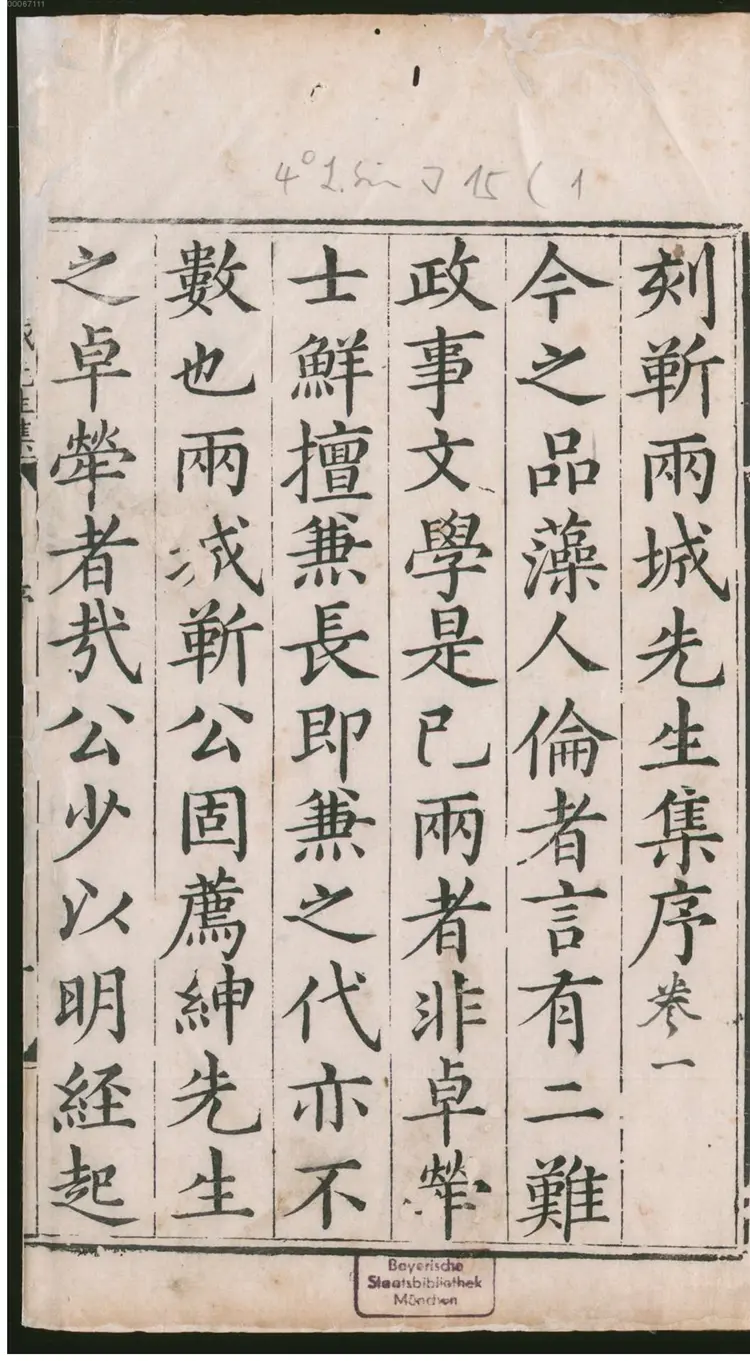 00067111
4° L. Sin J 15 ( 1
刻靳兩城先生集序 卷一
今之品藻人倫者言有二難
政事文學是已兩者非卓犖
士鮮擅兼長即兼之代亦不
數也兩城靳公固薦紳先生
之卓犖者㢤公少以明経起
先生集
序
一
Bayerische
Staatsbibliothek
München